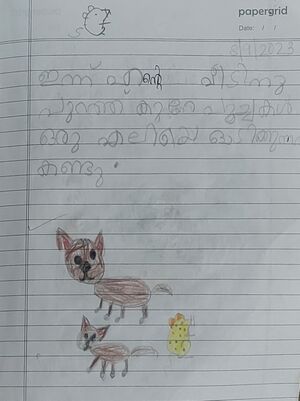 papergrid
Date: / /
8/9/2023
ഇന്ന് എന്റെ വീടിനു
പുറത്ത് കുറേ പൂച്ചകൾ
ഒരു എലിയെ ഓടിക്കുന്നത
കണ്ടു.